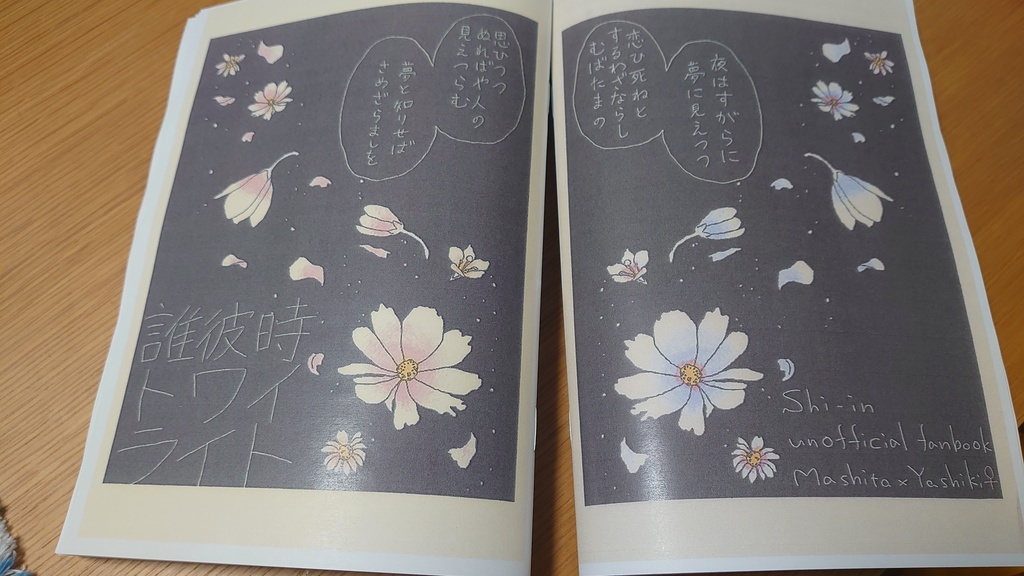 思ひつつ
ぬればや人の
見えつらむ
夢と知りせば
さめざらましを
誰彼時
トワイ
ライト
恋ひ死ねと
するわざならし
むばたまの
夜はすがらに
夢に見えつつ
Shi-in
unofficial fanbook
Mashita×Yashiki♀